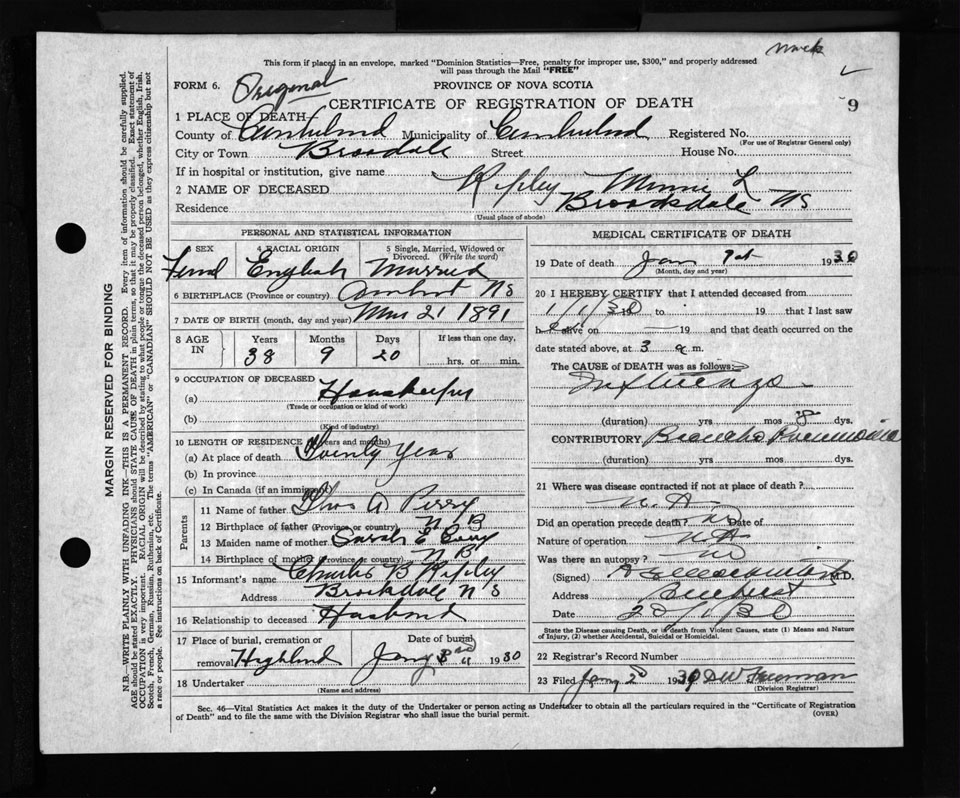 This form if placed in an envelope, marked "Dominion Statistics—Free, penalty for improper use, $300," and properly addressed
will pass through the Mail "FREE"
FORM 6. Original PROVINCE OF NOVA SCOTIA
CERTIFICATE OF REGISTRATION OF DEATH 9
1 PLACE OF DEATH
County of Cumberland Municipality of Cumberland Registered No.
(For use of Registrar General only)
City or Town Brookdale Street House No.
If in hospital or institution, give name
2 NAME OF DECEASED Ripley Minnie L
Residence Brookdale NS
(Usual place of abode)
PERSONAL AND STATISTICAL INFORMATION
3 SEX 4 RACIAL ORIGIN 5 Single, Married, Widowed or Divorced. (Write the word)
Femal English Married
6 BIRTHPLACE (Province or country) Amherst NS
7 DATE OF BIRTH (month, day and year) Mar 21 1891
8 AGE IN Years Months Days If less than one day,
38 9 20 hrs. or min.
9 OCCUPATION OF DECEASED
(a) Housekeeper
(Trade or occupation or kind of work)
(b)
(Kind of industry)
10 LENGTH OF RESIDENCE (Years and months)
(a) At place of death Twenty Years
(b) In province
(c) In Canada (if an immigrant)
Parents
11 Name of father Thos A Perry
12 Birthplace of father (Province or country) N B
13 Maiden name of mother Sarah E
14 Birthplace of mother (Province or country) N B
15 Informant's name Charles B Ripley
Address Brookdale N S
16 Relationship to deceased Husband
17 Place of burial, cremation or removal Highland Date of burial Jany 3rd 1930
18 Undertaker
(Name and address)
MEDICAL CERTIFICATE OF DEATH
19 Date of death Jan 1st 1930
(Month, day and year)
20 I HEREBY CERTIFY that I attended deceased from
1/1/30 19 to 19 that I last saw
h alive on 19 and that death occurred on
date stated above, at 3 a m.
The CAUSE of DEATH was as follows:
Influenza
(duration) yrs mos 8 dys.
CONTRIBUTORY Broncho Pneumonia
(duration) yrs mos dys.
21 Where was disease contracted if not at place of death?
N. A
Did an operation precede death? no Date of
Nature of operation NA
Was there an autopsy? no
(Signed) M.D.
Address Amherst
Date 2/1/30
State the Disease causing Death, or in death from Violent Causes, state (1) Means and Nature
of Injury, (2) whether Accidental, Suicidal or Homicidal.
22 Registrar's Record Number
23 Filed Jany 2 1930 DW Freeman
(Division Registrar)
Sec. 46—Vital Statistics Act makes it the duty of the Undertaker or person acting as Undertaker to obtain all the particulars required in the "Certificate of Registration
of Death" and to file the same with the Division Registrar who shall issue the burial permit. (OVER)
MARGIN RESERVED FOR BINDING
N.B.—WRITE PLAINLY WITH UNFADING INK—THIS IS A PERMANENT RECORD. Every item of information should be carefully supplied.
AGE should be stated EXACTLY. PHYSICIANS should STATE CAUSE OF DEATH in plain terms, so that it may be properly classified. Exact statement of
OCCUPATION is very important. RACIAL ORIGIN will be described by stating to what people or tongue the deceased person belonged, whether English, Irish,
Scotch, French, German, Russian, Ruthenian, etc. The terms "AMERICAN" or "CANADIAN" SHOULD NOT BE USED as they express citizenship but not
a race or people. See instructions on back of Certificate.